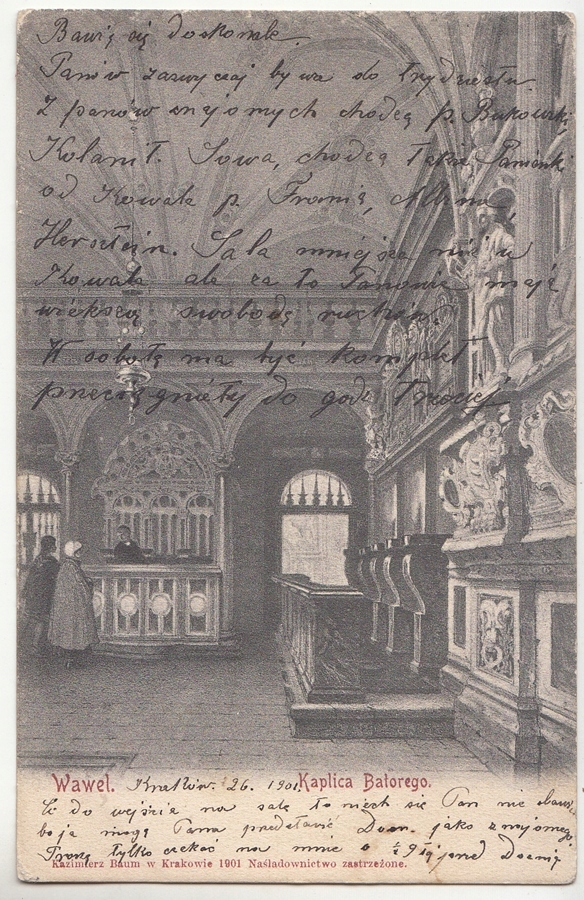 Bawię się doskonale.
Panów zazwyczaj bywa do trzydziestu.
Z panów znajomych chodzą p. Bukowski,
Kolanit. Sowa, chodzą także Panienki
od Kowala p. Frania,
Hersztein. Sala mniejsza niż u
Kowala ale za to Panowie mają
większą swobodę ruchów.
W sobotę ma być komplet
przeciągnięty do godz. Trzeciej
Wawel. Kraków. 26. 1901. Kaplica Batorego.
Co do wejścia na salę to niech się Pan nie obawia
bo ja mogę Pana przedstawić Dom. jako znajomego.
Proszę tylko czekać na mnie o ½ 9 tej przed Domem
Kazimierz Baum w Krakowie 1901 Naśladownictwo zastrzeżone.